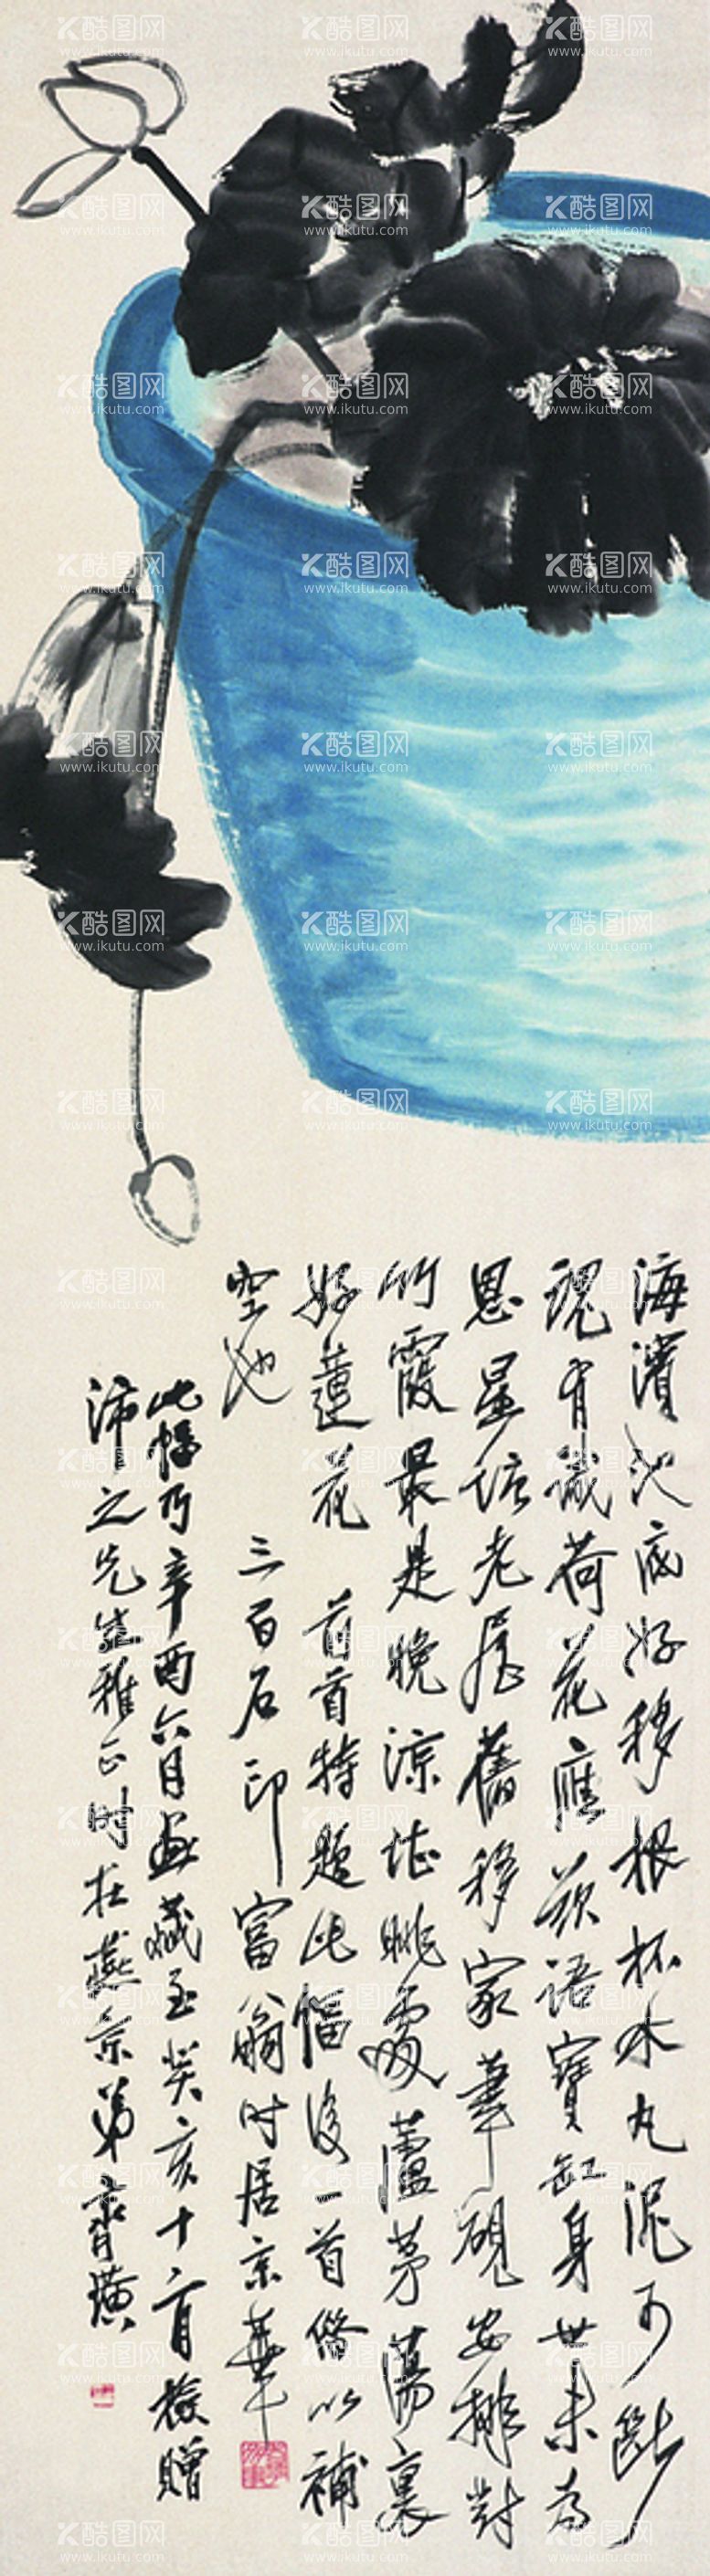 海濱池底好移根杯水丸泥可斷
魂有識荷花應欲語寶缸身世未為
恩星塘老屋舊移家筆硯安排對
竹霞最是晚涼堪眺處蘆茅蕩裏
好蓮花 前首特題此幅後一首借以補
空地 三百石印富翁时居京華
此幅乃辛酉六月畫藏至癸亥十二月檢贈
沛之先生雅正时在燕京弟齊璜
酷图网
www.ikutu.com